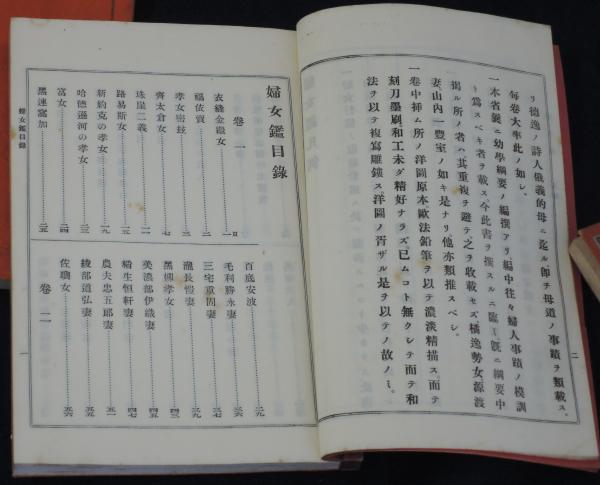 リ德逸ノ詩人俄義的母ニ迄ル卽チ母道ノ事蹟ヲ類載ス。
每卷大率此ノ如シ。
一本省曩ニ幼學綱要ノ編撰アリ編中往々婦人事蹟ノ模訓
ト爲スベキ者ヲ載ス今此書ヲ撰スルニ臨ミ旣ニ綱要中
揭ル所ノ者ハ其重複ヲ避テ之ヲ收載セズ橘逸勢女源渡
妻山內一豐室ノ如キ是ナリ。他亦類推スベシ。
一卷中挿ム所ノ洋圖原本歐法鉛筆ヲ以テ濃淡精描ス。而テ
刻刀墨刷和工未ダ精好ナラズ。已ムコト無クシテ而テ和
法ヲ以テ複寫雕鏤ス。洋圖ノ肖ザル是ヲ以テノ故ノミ。
二
婦女鑑目錄
卷一
衣縫金繼女 一
福依賣 二
孝女密技 三
齊太倉女 七
珠崖二義
路易斯女 一五
新約克の孝女 一九
哈德遜河の孝女
富女 二四
黑速寫加 二五
百底安波 二九
毛利勝永妻 三六
三宅重固妻 三七
瀧長愷妻 三九
黑柳孝女 四三
美濃部伊織妻 四七
稻生恒軒妻 四七
農夫忠五郞妻 五一
綾部道弘妻 五五
佐璵女 五六
卷二
婦女鑑目錄
一